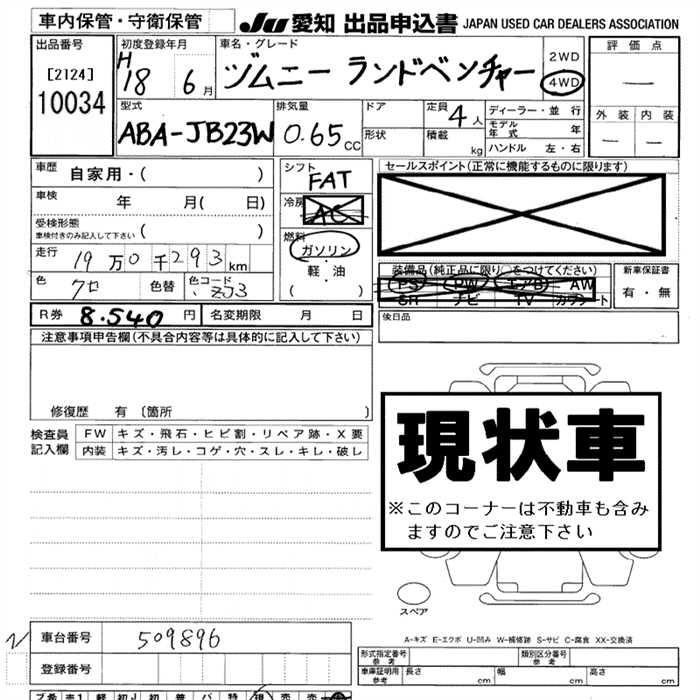 車内保管・守衛保管
JU 愛知 出品申込書 JAPAN USED CAR DEALERS ASSOCIATION
出品番号 初度登録年月 車名・グレード 2WD 評価点
[2124] H 18 6月 ヅムニー ランドベンチャー 4WD —
10034
型式 排気量 ドア 定員 4人 ディーラー・並行 外装 内装
ABA-JB23W 0.65CC 形状 積載 kg モデル年式 年 — —
ハンドル 左・右
車歴 自家用・( ) シフト FAT セールスポイント(正常に機能するものに限ります)
車検 年 月( 日) 冷房 AC
受検形態 車検付きのみ記入して下さい ( ) 燃料 ガソリン・軽・油 ( )
走行 19万0千293km 装備品(純正品に限り○をつけてください) 新車保証書
色 7セ 色替 色コード ZJ3 PS PW エアB AW 有・無
SR ナビ TV カワシート
R券 8.540円 名変期限 月 日 後日品
注意事項申告欄(不具合内容等は具体的に記入して下さい)
修復歴 有 〔箇所 〕
検査員 FW キズ・飛石・ヒビ割・リペア跡・X要
記入欄 内装 キズ・汚レ・コゲ・穴・スレ・キレ・破レ
現状車
※このコーナーは不動車も含み
ますのでご注意下さい
スペア
A-キズ E-エクボ U-凹み W-補修跡 S-サビ C-腐食 XX-交換済
車台番号 509896
登録番号
形式指定番号 参考 類別区分番号 参考
車庫証明用 参考 長さ cm 幅 cm 高さ cm